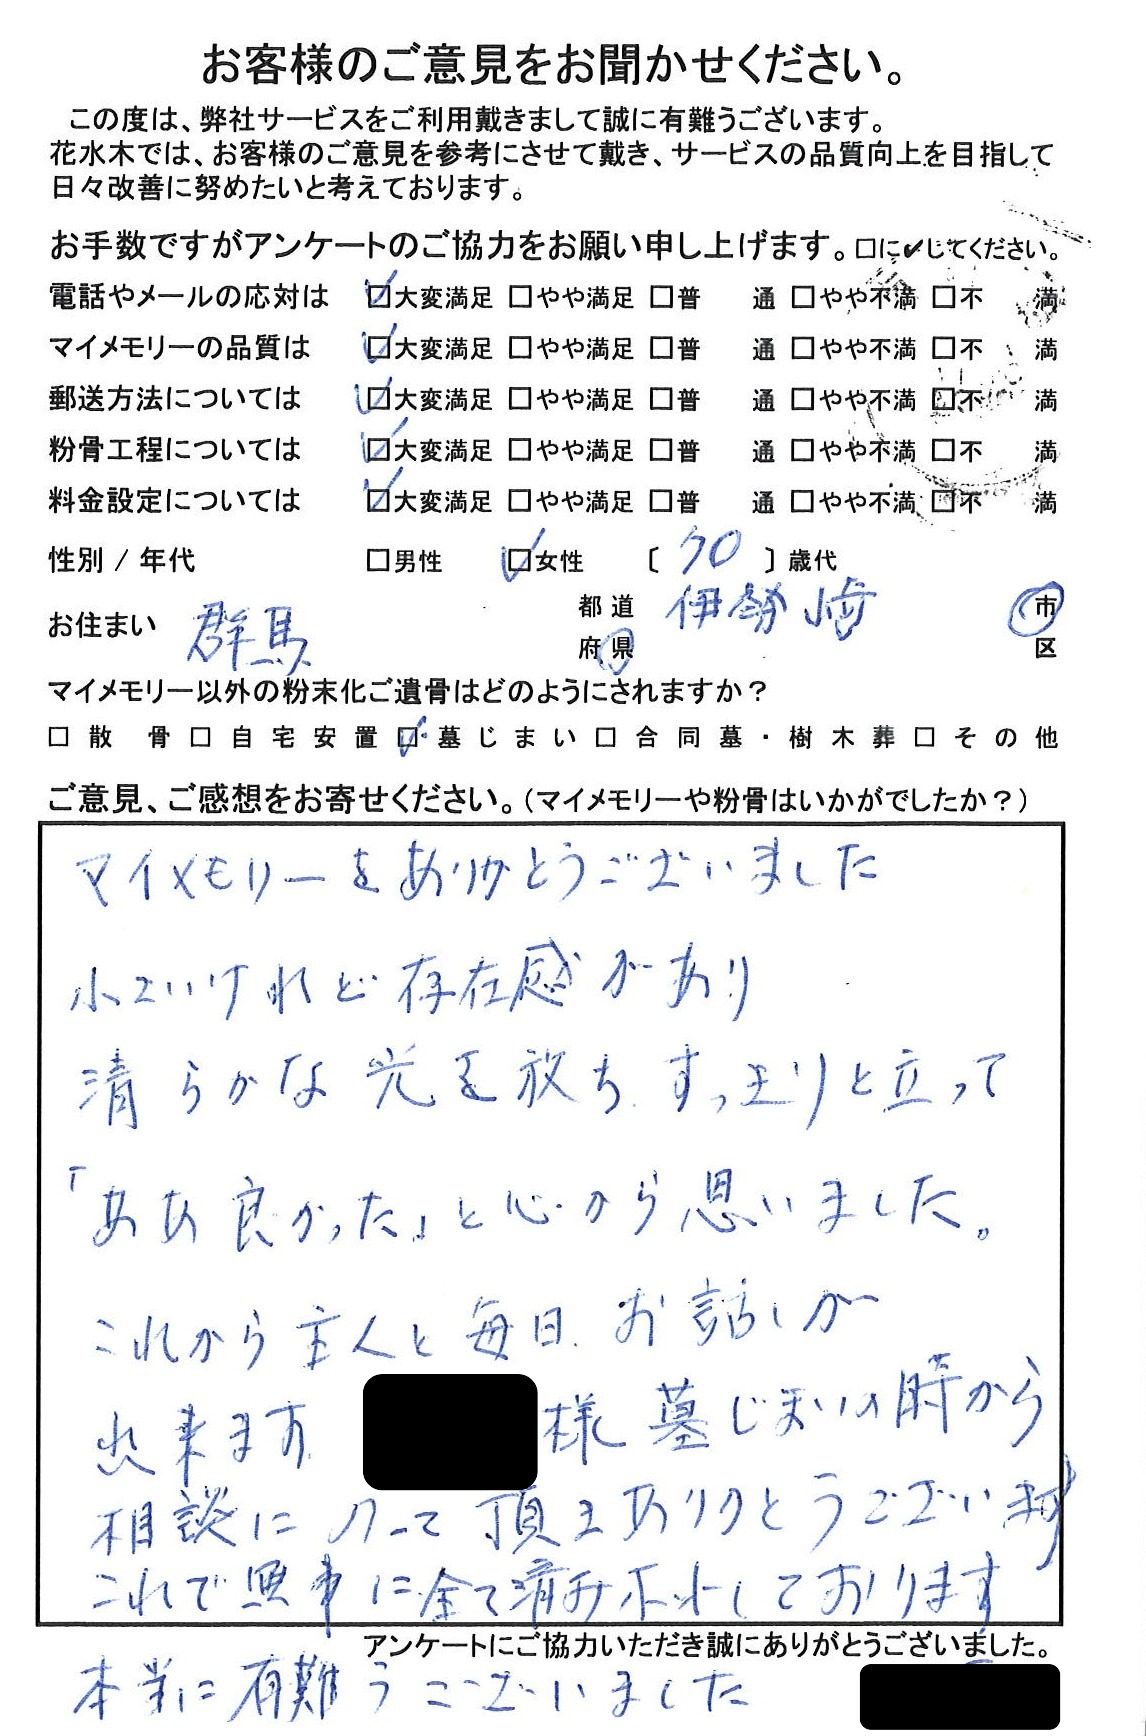 お客様のご意見をお聞かせください。
この度は、弊社サービスをご利用戴きまして誠に有難うございます。
花水木では、お客様のご意見を参考にさせて戴き、サービスの品質向上を目指して
日々改善に努めたいと考えております。
お手数ですがアンケートのご協力をお願い申し上げます。□に✓じてください。
電話やメールの応対は ☑大変満足 □やや満足 □普 通 □やや不満 □不 満
マイメモリーの品質は ☑大変満足 □やや満足 □普 通 □やや不満 □不 満
郵送方法については ☑大変満足 □やや満足 □普 通 □やや不満 □不 満
粉骨工程については ☑大変満足 □やや満足 □普 通 □やや不満 □不 満
料金設定については ☑大変満足 □やや満足 □普 通 □やや不満 □不 満
性別 / 年代 □男性 ☑女性 〔 70 〕歳代
お住まい 群馬 都道府県 伊勢崎 市区
マイメモリー以外の粉末化ご遺骨はどのようにされますか？
□散 骨 □自宅安置 ☑墓じまい □合同墓・樹木葬 □その他
ご意見、ご感想をお寄せください。（マイメモリーや粉骨はいかがでしたか？）
マイメモリーをありがとうございました
小さいけれど存在感があり
清らかな光を放ち すっきりと立って
「ああ良かった」と心から思いました。
これから主人と毎日 お話しが
出来ます 様 墓じまいの時から
相談にのって頂きありがとうございます
これで無事に全て済みホットしております
アンケートにご協力いただき誠にありがとうございました。
本当に有難うございました